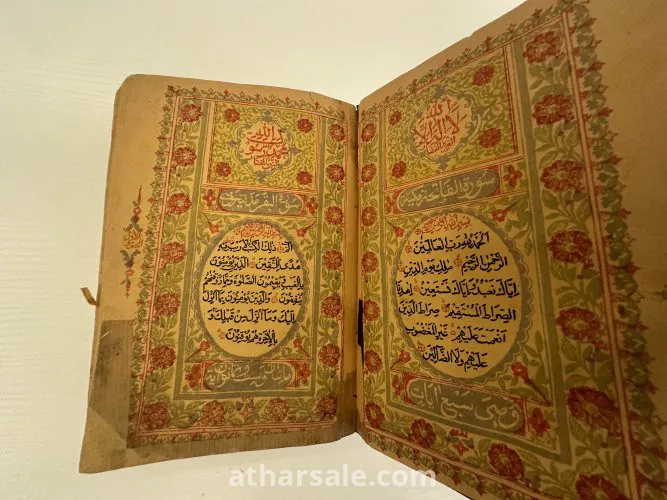 سورة الفاتحة مكية
الحمد لله رب العالمين
الرحمن الرحيم ملك يوم الدين
اياك نعبد واياك نستعين اهدنا
الصراط المستقيم صراط الذين
انعمت عليهم غير المغضوب
عليهم ولا الضالين
وهي سبع آيات
سورة البقرة مدنية
الم ذلك الكتاب لا ريب فيه
هدى للمتقين الذين يؤمنون
بالغيب ويقيمون الصلوة ومما رزقنهم
ينفقون والذين يؤمنون بما انزل
اليك وما انزل من قبلك و
بالاخرة هم يوقنون
atharsale.com